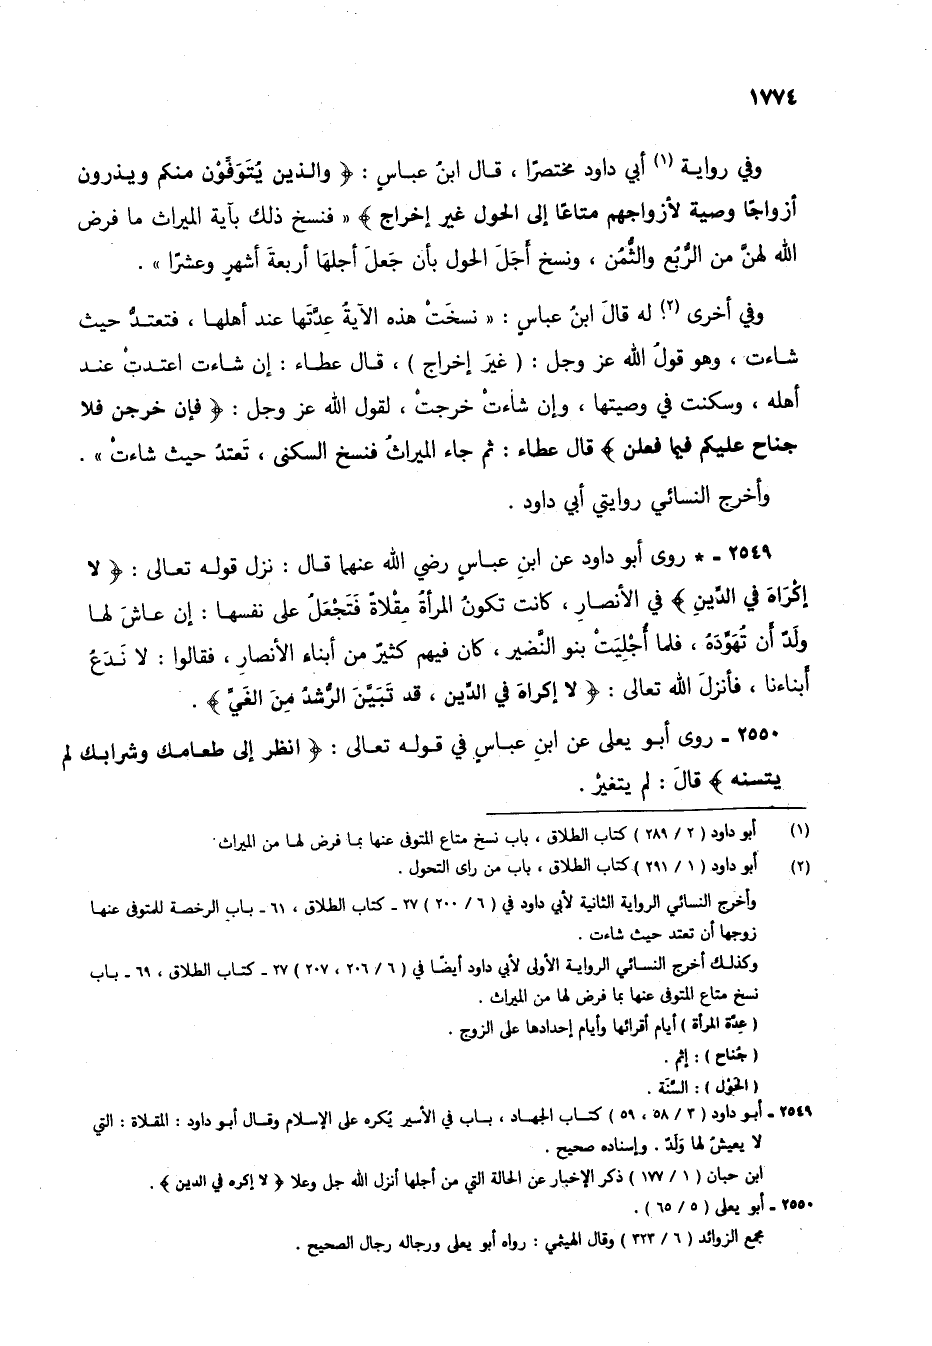 ١٧٧٤
وفي رواية (١) أبي داود مختصرًا ، قال ابنُ عباسٍ : ﴿ والذين يُتَوَفَّوْن منكم ويذرون
أزواجًا وصية لأزواجهم متاعًا إلى الحول غير إخراج ﴾ « فنسخ ذلك بآية الميراث ما فرض
الله لهنَّ من الرُّبُع والثُّمُن ، ونسخ أَجَلَ الحول بأن جَعَلَ أجلهَا أربعةَ أشهرٍ وعشرًا » .
وفي أخرى (٢) له قالَ ابنُ عباسٍ : « نسخَتْ هذه الآيةُ عِدَّتَها عند أهلها ، فتعتدُّ حيث
شاءت ، وهو قولُ الله عز وجل : ( غيرَ إخراج ) ، قال عطاء : إن شاءت اعتدتْ عند
أهله ، وسكنت في وصيتها ، وإن شاءتْ خرجتْ ، لقول الله عز وجل : ﴿ فإن خرجن فلا
جناح عليكم فيما فعلن ﴾ قال عطاء : ثم جاء الميراثُ فنسخ السكنى ، تَعتدُ حيث شاءتْ » .
وأخرج النسائي روايتي أبي داود .
٢٥٤٩ - * روى أبو داود عن ابنِ عباسٍ رضي الله عنهما قال : نزل قوله تعالى : ﴿ لا
إكْرَاهَ في الدِّينِ ﴾ في الأنصارِ ، كانت تكونُ المرأةُ مِقْلاةً فَتَجْعَلُ على نفسها : إن عاشَ لها
ولَدٌ أَن تُهَوِّدَهُ ، فلما أُجْلِيَتْ بنو النَّضير ، كان فيهم كثيرٌ من أبناء الأنصارِ ، فقالوا : لا نَدَعُ
أبناءنا ، فأنزلَ الله تعالى : ﴿ لا إكراهَ في الدِّين ، قد تَبَيَّنَ الرُّشدُ مِنَ الغَيِّ ﴾ .
٢٥٥٠ - روى أبو يعلى عن ابنِ عباسٍ في قوله تعالى : ﴿ انظر إلى طعامك وشرابك لم
يتسنه ﴾ قالَ : لم يتغيرْ .
(١) أبو داود ( ٢ / ٢٨٩ ) كتاب الطلاق ، باب نسخ متاع المتوفى عنها بما فرض لها من الميراث .
(٢) أبو داود ( ١ / ٢٩١ ) كتاب الطلاق ، باب من راى التحول .
وأخرج النسائي الرواية الثانية لأبي داود في ( ٦ / ٢٠٠ ) ٢٧ - كتاب الطلاق ، ٦١ - باب الرخصة للمتوفى عنها
زوجها أن تعتد حيث شاءت .
وكذلك أخرج النسائي الرواية الأولى لأبي داود أيضًا في ( ٦ / ٢٠٦ ، ٢٠٧ ) ٢٧ - كتاب الطلاق ، ٦٩ - باب
نسخ متاع المتوفى عنها بما فرض لها من الميراث .
( عِدَّة المرأة ) أيام أقرائها وأيام إحدادها على الزوج .
( جُناح ) : إثم .
( الحَوْل ) : السَّنَة .
٢٥٤٩ - أبو داود ( ٣ / ٥٨ ، ٥٩ ) كتاب الجهاد ، باب في الأسير يُكره على الإسلام وقال أبو داود : المقلاة : التي
لا يعيشُ لها وَلَدٌ . وإسناده صحيح .
ابن حبان ( ١ / ١٧٧ ) ذكر الإخبار عن الحالة التي من أجلها أنزل الله جل وعلا ﴿ لا إكره في الدين ﴾ .
٢٥٥٠ - أبو يعلى ( ٥ / ٦٥ ) .
مجمع الزوائد ( ٦ / ٣٢٣ ) وقال الهيثمي : رواه أبو يعلى ورجاله رجال الصحيح .